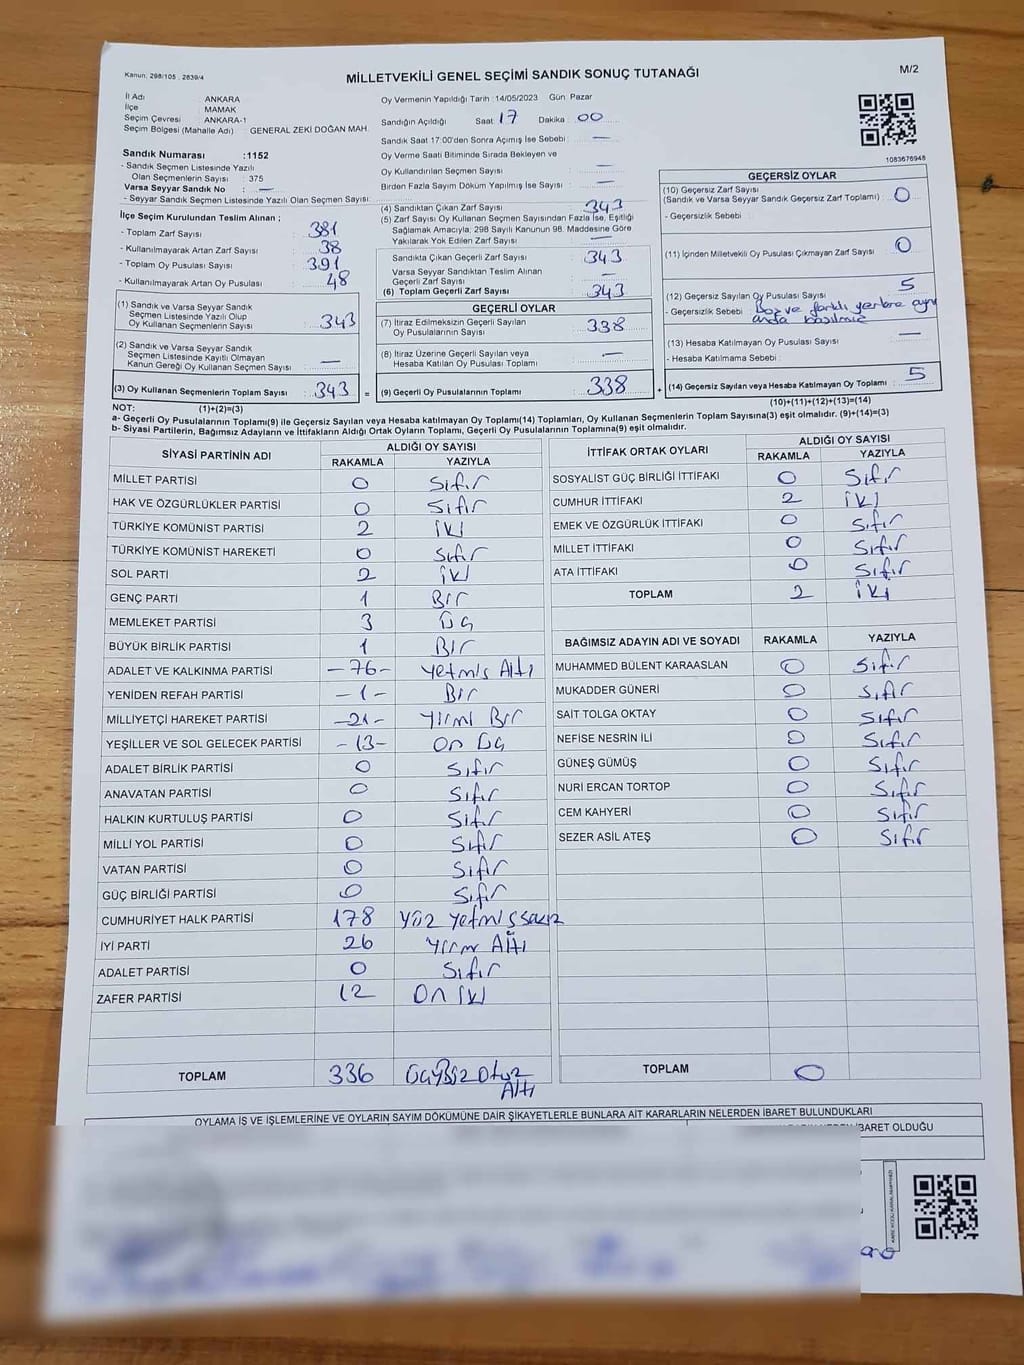 Kanun, 298/105 , 2839/4
MİLLETVEKİLİ GENEL SEÇİMİ SANDIK SONUÇ TUTANAĞI
M/2
İl Adı : ANKARA
İlçe : MAMAK
Seçim Çevresi : ANKARA-1
Seçim Bölgesi (Mahalle Adı) : GENERAL ZEKİ DOĞAN MAH.
Oy Vermenin Yapıldığı Tarih : 14/05/2023 Gün Pazar
Sandığın Açıldığı Saat 17 Dakika : 00
Sandık Saat 17:00'den Sonra Açımış İse Sebebi : —
Oy Verme Saati Bitiminde Sırada Bekleyen ve
Oy Kullandırılan Seçmen Sayısı : —
Birden Fazla Sayım Döküm Yapılmış İse Sayısı : —
1083676948
Sandık Numarası :1152
- Sandık Seçmen Listesinde Yazılı
Olan Seçmenlerin Sayısı : 375
Varsa Seyyar Sandık No : —
- Seyyar Sandık Seçmen Listesinde Yazılı Olan Seçmen Sayısı:
İlçe Seçim Kurulundan Teslim Alınan ;
- Toplam Zarf Sayısı : 381
- Kullanılmayarak Artan Zarf Sayısı : 38
- Toplam Oy Pusulası Sayısı : 391
- Kullanılmayarak Artan Oy Pusulası : 48
(1) Sandık ve Varsa Seyyar Sandık
Seçmen Listesinde Yazılı Olup
Oy Kullanan Seçmenlerin Sayısı : 343
(2) Sandık ve Varsa Seyyar Sandık
Seçmen Listesinde Kayıtlı Olmayan
Kanun Gereği Oy Kullanan Seçmen Sayısı : —
(3) Oy Kullanan Seçmenlerin Toplam Sayısı : 343 =
(1)+(2)=(3)
(4) Sandıktan Çıkan Zarf Sayısı : 343
(5) Zarf Sayısı Oy Kullanan Seçmen Sayısından Fazla İse, Eşitliği
Sağlamak Amacıyla, 298 Sayılı Kanunun 98. Maddesine Göre
Yakılarak Yok Edilen Zarf Sayısı : —
Sandıkta Çıkan Geçerli Zarf Sayısı : 343
Varsa Seyyar Sandıktan Teslim Alınan
Geçerli Zarf Sayısı : —
(6) Toplam Geçerli Zarf Sayısı : 343
GEÇERLİ OYLAR
(7) İtiraz Edilmeksizin Geçerli Sayılan
Oy Pusulalarının Sayısı : 338
(8) İtiraz Üzerine Geçerli Sayılan veya
Hesaba Katılan Oy Pusulası Toplamı : —
(9) Geçerli Oy Pusulalarının Toplamı : 338 +
GEÇERSİZ OYLAR
(10) Geçersiz Zarf Sayısı
(Sandık ve Varsa Seyyar Sandık Geçersiz Zarf Toplamı) : 0
- Geçersizlik Sebebi
(11) İçinden Milletvekili Oy Pusulası Çıkmayan Zarf Sayısı : 0
(12) Geçersiz Sayılan Oy Pusulası Sayısı : 5
- Geçersizlik Sebebi : Boş ve farklı yerlere aynı
anda basılmış
(13) Hesaba Katılmayan Oy Pusulası Sayısı : —
- Hesaba Katılmama Sebebi :
(14) Geçersiz Sayılan veya Hesaba Katılmayan Oy Toplamı : 5
(10)+(11)+(12)+(13)=(14)
NOT:
a- Geçerli Oy Pusulalarının Toplamı(9) ile Geçersiz Sayılan veya Hesaba katılmayan Oy Toplamı(14) Toplamları, Oy Kullanan Seçmenlerin Toplam Sayısına(3) eşit olmalıdır. (9)+(14)=(3)
b- Siyasi Partilerin, Bağımsız Adayların ve İttifakların Aldığı Ortak Oyların Toplamı, Geçerli Oy Pusulalarının Toplamına(9) eşit olmalıdır.
SİYASİ PARTİNİN ADI ALDIĞI OY SAYISI
RAKAMLA YAZIYLA
MİLLET PARTİSİ 0 Sıfır
HAK VE ÖZGÜRLÜKLER PARTİSİ 0 Sıfır
TÜRKİYE KOMÜNİST PARTİSİ 2 İki
TÜRKİYE KOMÜNİST HAREKETİ 0 Sıfır
SOL PARTİ 2 İki
GENÇ PARTİ 1 Bir
MEMLEKET PARTİSİ 3 Üç
BÜYÜK BİRLİK PARTİSİ 1 Bir
ADALET VE KALKINMA PARTİSİ -76- Yetmiş Altı
YENİDEN REFAH PARTİSİ -1- Bir
MİLLİYETÇİ HAREKET PARTİSİ -21- Yirmi Bir
YEŞİLLER VE SOL GELECEK PARTİSİ -13- On Üç
ADALET BİRLİK PARTİSİ 0 Sıfır
ANAVATAN PARTİSİ 0 Sıfır
HALKIN KURTULUŞ PARTİSİ 0 Sıfır
MİLLİ YOL PARTİSİ 0 Sıfır
VATAN PARTİSİ 0 Sıfır
GÜÇ BİRLİĞİ PARTİSİ 0 Sıfır
CUMHURİYET HALK PARTİSİ 178 Yüz Yetmiş sekiz
İYİ PARTİ 26 Yirmi Altı
ADALET PARTİSİ 0 Sıfır
ZAFER PARTİSİ 12 On iki
TOPLAM 336 Üçyüz Otuz
Altı
İTTİFAK ORTAK OYLARI ALDIĞI OY SAYISI
RAKAMLA YAZIYLA
SOSYALİST GÜÇ BİRLİĞİ İTTİFAKI 0 Sıfır
CUMHUR İTTİFAKI 2 İki
EMEK VE ÖZGÜRLÜK İTTİFAKI 0 Sıfır
MİLLET İTTİFAKI 0 Sıfır
ATA İTTİFAKI 0 Sıfır
TOPLAM 2 İki
BAĞIMSIZ ADAYIN ADI VE SOYADI RAKAMLA YAZIYLA
MUHAMMED BÜLENT KARAASLAN 0 Sıfır
MUKADDER GÜNERİ 0 Sıfır
SAİT TOLGA OKTAY 0 Sıfır
NEFİSE NESRİN İLİ 0 Sıfır
GÜNEŞ GÜMÜŞ 0 Sıfır
NURİ ERCAN TORTOP 0 Sıfır
CEM KAHYERİ 0 Sıfır
SEZER ASİL ATEŞ 0 Sıfır
TOPLAM 0
OYLAMA İŞ VE İŞLEMLERİNE VE OYLARIN SAYIM DÖKÜMÜNE DAİR ŞİKAYETLERLE BUNLARA AİT KARARLARIN NELERDEN İBARET BULUNDUKLARI
İBARET OLDUĞU